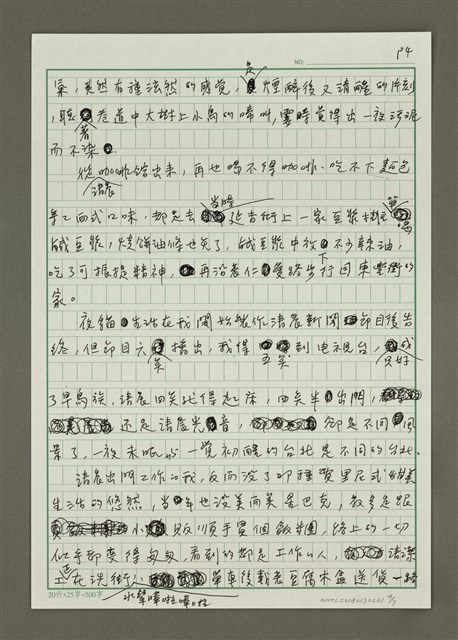 P4
NO:
氣，竟然有種法然的感覺，是煙醉後又清醒的片刻
，聽著巷道中大樹上小鳥的啼叫，霎時覺得出一股污泥
而不染。
從咖啡館出來，再也喝不得咖啡、吃不下麵包
清晨
等西式口味，都是去當時延吉街上一家豆漿攤
鹹豆漿，燒餅油條也免了，鹹豆漿中放不少辣油，
吃了可振振精神，再沿著仁愛路步行回東豐街的
家。
夜貓生活在我開始製作清晨新聞節目後告
終，但節目六點播出，我得五點到電視台，成
只好
了早鳥族，清晨四點就得起床，四點半出門，
還是清晨光音，卻是不同風
景了，一夜未眠的一覺初醒的台北是不同的台北。
清晨出門工作的我，反而沒了那種費里尼式
生活的悠然，當年也沒美而美星巴克，較多是跟
小販順手買個飯糰，路上的一切
似乎都變得匆匆，看到的都是工作的人，清潔
工在洗街，單車後載著豆腐木盒送貨一路
水聲嘩啦嘩啦
20行×25字=500字